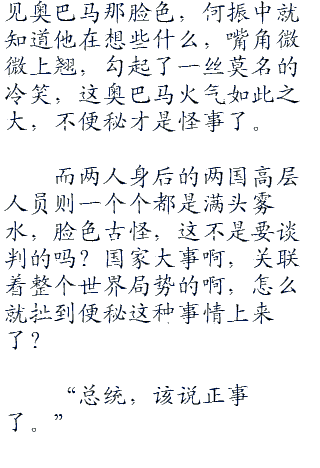 见奥巴马那脸色，何振中就
知道他在想些什么，嘴角微
微上翘，勾起了一丝莫名的
冷笑，这奥巴马火气如此之
大，不便秘才是怪事了。
而两人身后的两国高层
人员则一个个都是满头雾
水，脸色古怪，这不是要谈
判的吗？国家大事啊，关联
着整个世界局势的啊，怎么
就扯到便秘这种事情上来
了？
“总统，该说正事
了。”